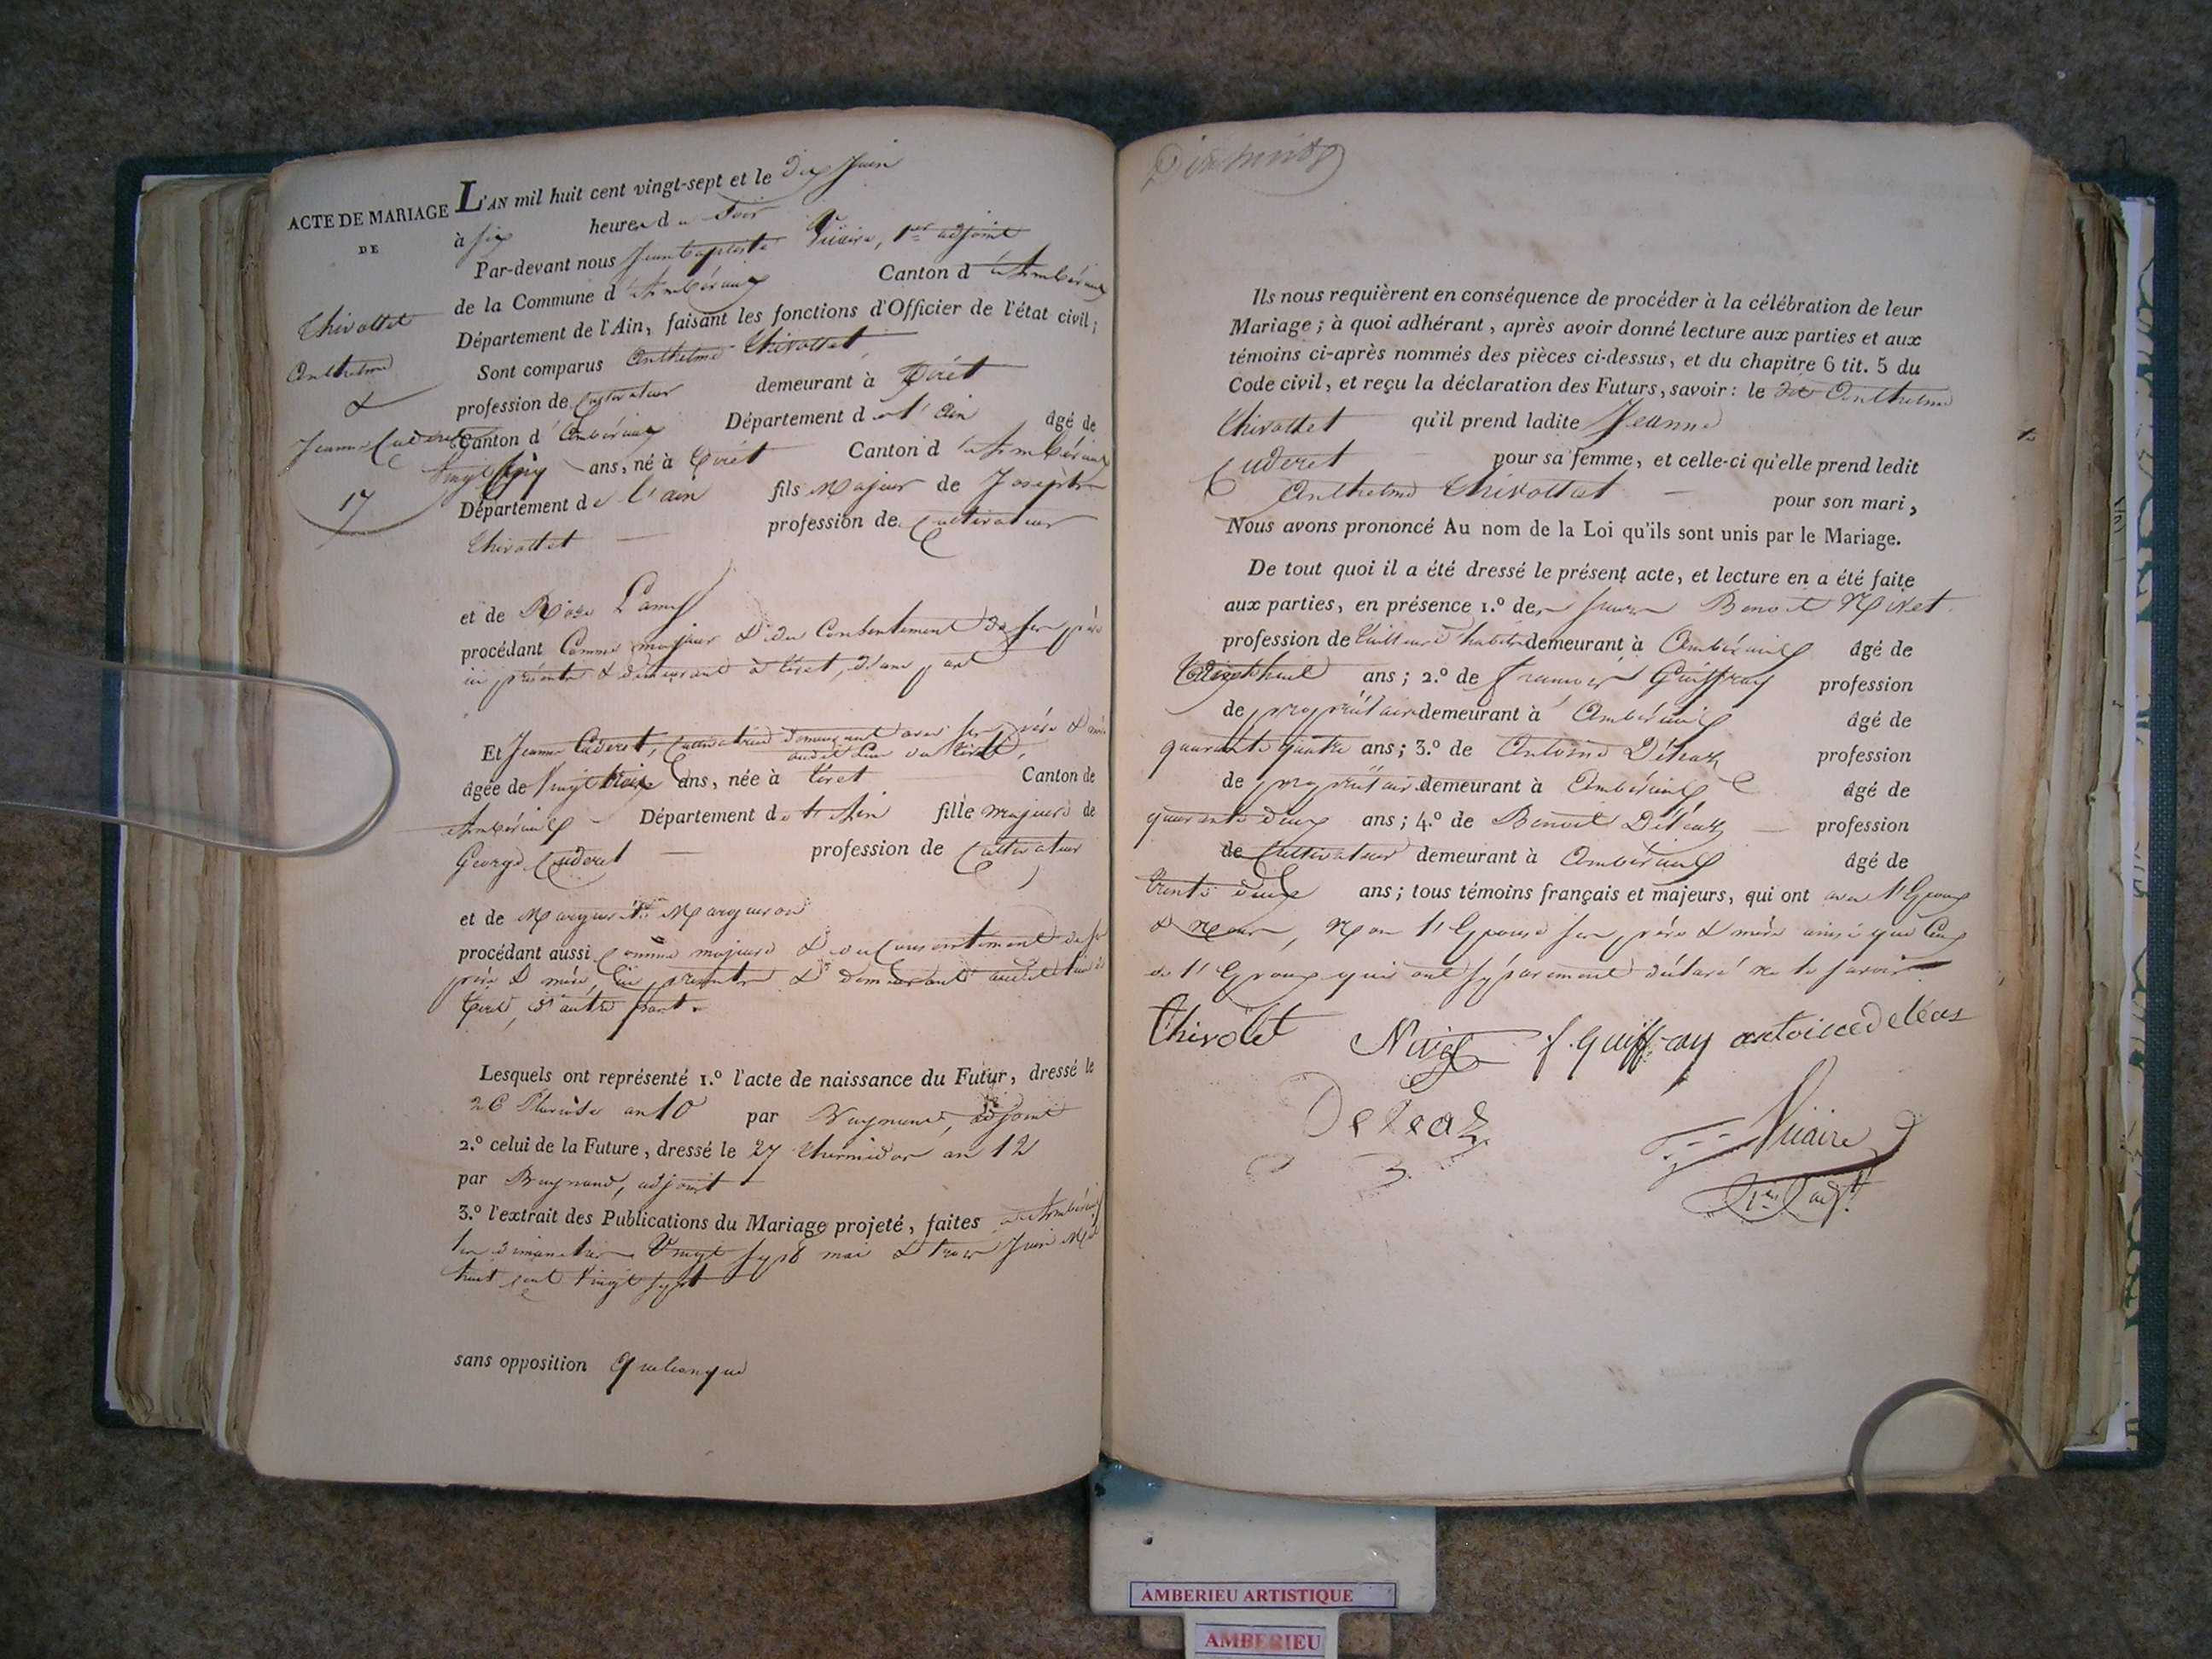 ACTE DE MARIAGE
DE
Chivollet
Anthelme
&
Jeanne Cuderet
17
L'AN mil huit cent vingt-sept et le dix Juin
à six heures du Soir
Par-devant nous Jean Baptiste Vicaire, 1er adjoint
de la Commune d'Ambérieux Canton d'Ambérieux
Département de l'Ain, faisant les fonctions d'Officier de l'état civil;
Sont comparus Anthelme Chivollet
profession de Cultivateur demeurant à Tiret
Canton d'Ambérieux Département de l'ain âgé de
Vingt cinq ans, né à Tiret Canton d'Ambérieux
Département de l'ain fils Majeur de Joseph
Chivollet profession de Cultivateur
et de Rose Lamy
procédant Comme majeur & du Consentement de ses père
ici présents & demeurant à Tiret, d'une part
Et Jeanne Cuderet, Cultivatrice demeurant avec ses père & mère
audit lieu de Tiret,
âgée de Vingt trois ans, née à Tiret Canton de
Ambérieux Département de l'Ain fille majeure de
George Cuderet profession de Cultivateur
et de Marguerite Margueron
procédant aussi comme majeure & du Consentement de ses
père & mère, ici présents & demeurant audit lieu de
Tiret, d'autre part.
Lesquels ont représenté 1.° l'acte de naissance du Futur, dressé le
26 Pluviôse an 10 par Buynand, adjoint
2.° celui de la Future, dressé le 27 thermidor an 12
par Buynand, adjoint
3.° l'extrait des Publications du Mariage projeté, faites à Ambérieux
les dimanches Vingt sept mai & trois Juin Mil
huit cent Vingt sept
sans opposition Quelconque
Ils nous requièrent en conséquence de procéder à la célébration de leur
Mariage; à quoi adhérant, après avoir donné lecture aux parties et aux
témoins ci-après nommés des pièces ci-dessus, et du chapitre 6 tit. 5 du
Code civil, et reçu la déclaration des Futurs, savoir: le dit Anthelme
Chivollet qu'il prend ladite Jeanne
Cuderet pour sa femme, et celle-ci qu'elle prend ledit
Anthelme Chivollet pour son mari,
Nous avons prononcé Au nom de la Loi qu'ils sont unis par le Mariage.
De tout quoi il a été dressé le présent acte, et lecture en a été faite
aux parties, en présence 1.° des sieurs Benoit Nivet
profession de Tailleur d'habits demeurant à Ambérieux âgé de
Vingt huit ans; 2.° de françois Guiffray profession
de propriétaire demeurant à Ambérieux âgé de
quarante quatre ans; 3.° de Antoine Déléaz profession
de propriétaire demeurant à Ambérieux âgé de
quarante deux ans; 4.° de Benoit Déléaz profession
de Cultivateur demeurant à Ambérieux âgé de
trente deux ans; tous témoins français et majeurs, qui ont avec l'Epoux
& Nous, Non l'Epouse ses père & mère ainsi que Ceux
de l'Epoux qui ont séparément déclaré ne le savoir
Chivolet Nivet f. guiffray antoine deleas
Deleaz
Vicaire
1er adjt
AMBERIEU ARTISTIQUE
AMBERIEU